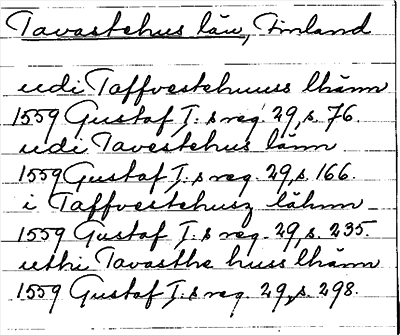 Tavastehus län, Finland
udi Taffvestehuuss lhänn
1559 Gustaf I:s reg. 29, s. 76.
udi Tavestehus länn
1559 Gustaf I:s reg. 29, s. 166.
i Taffvestehusz lähnn
1559 Gustaf I:s reg. 29, s. 235.
uthi Tavasthe huss lhänn
1559 Gustaf I:s reg. 29, s. 298.